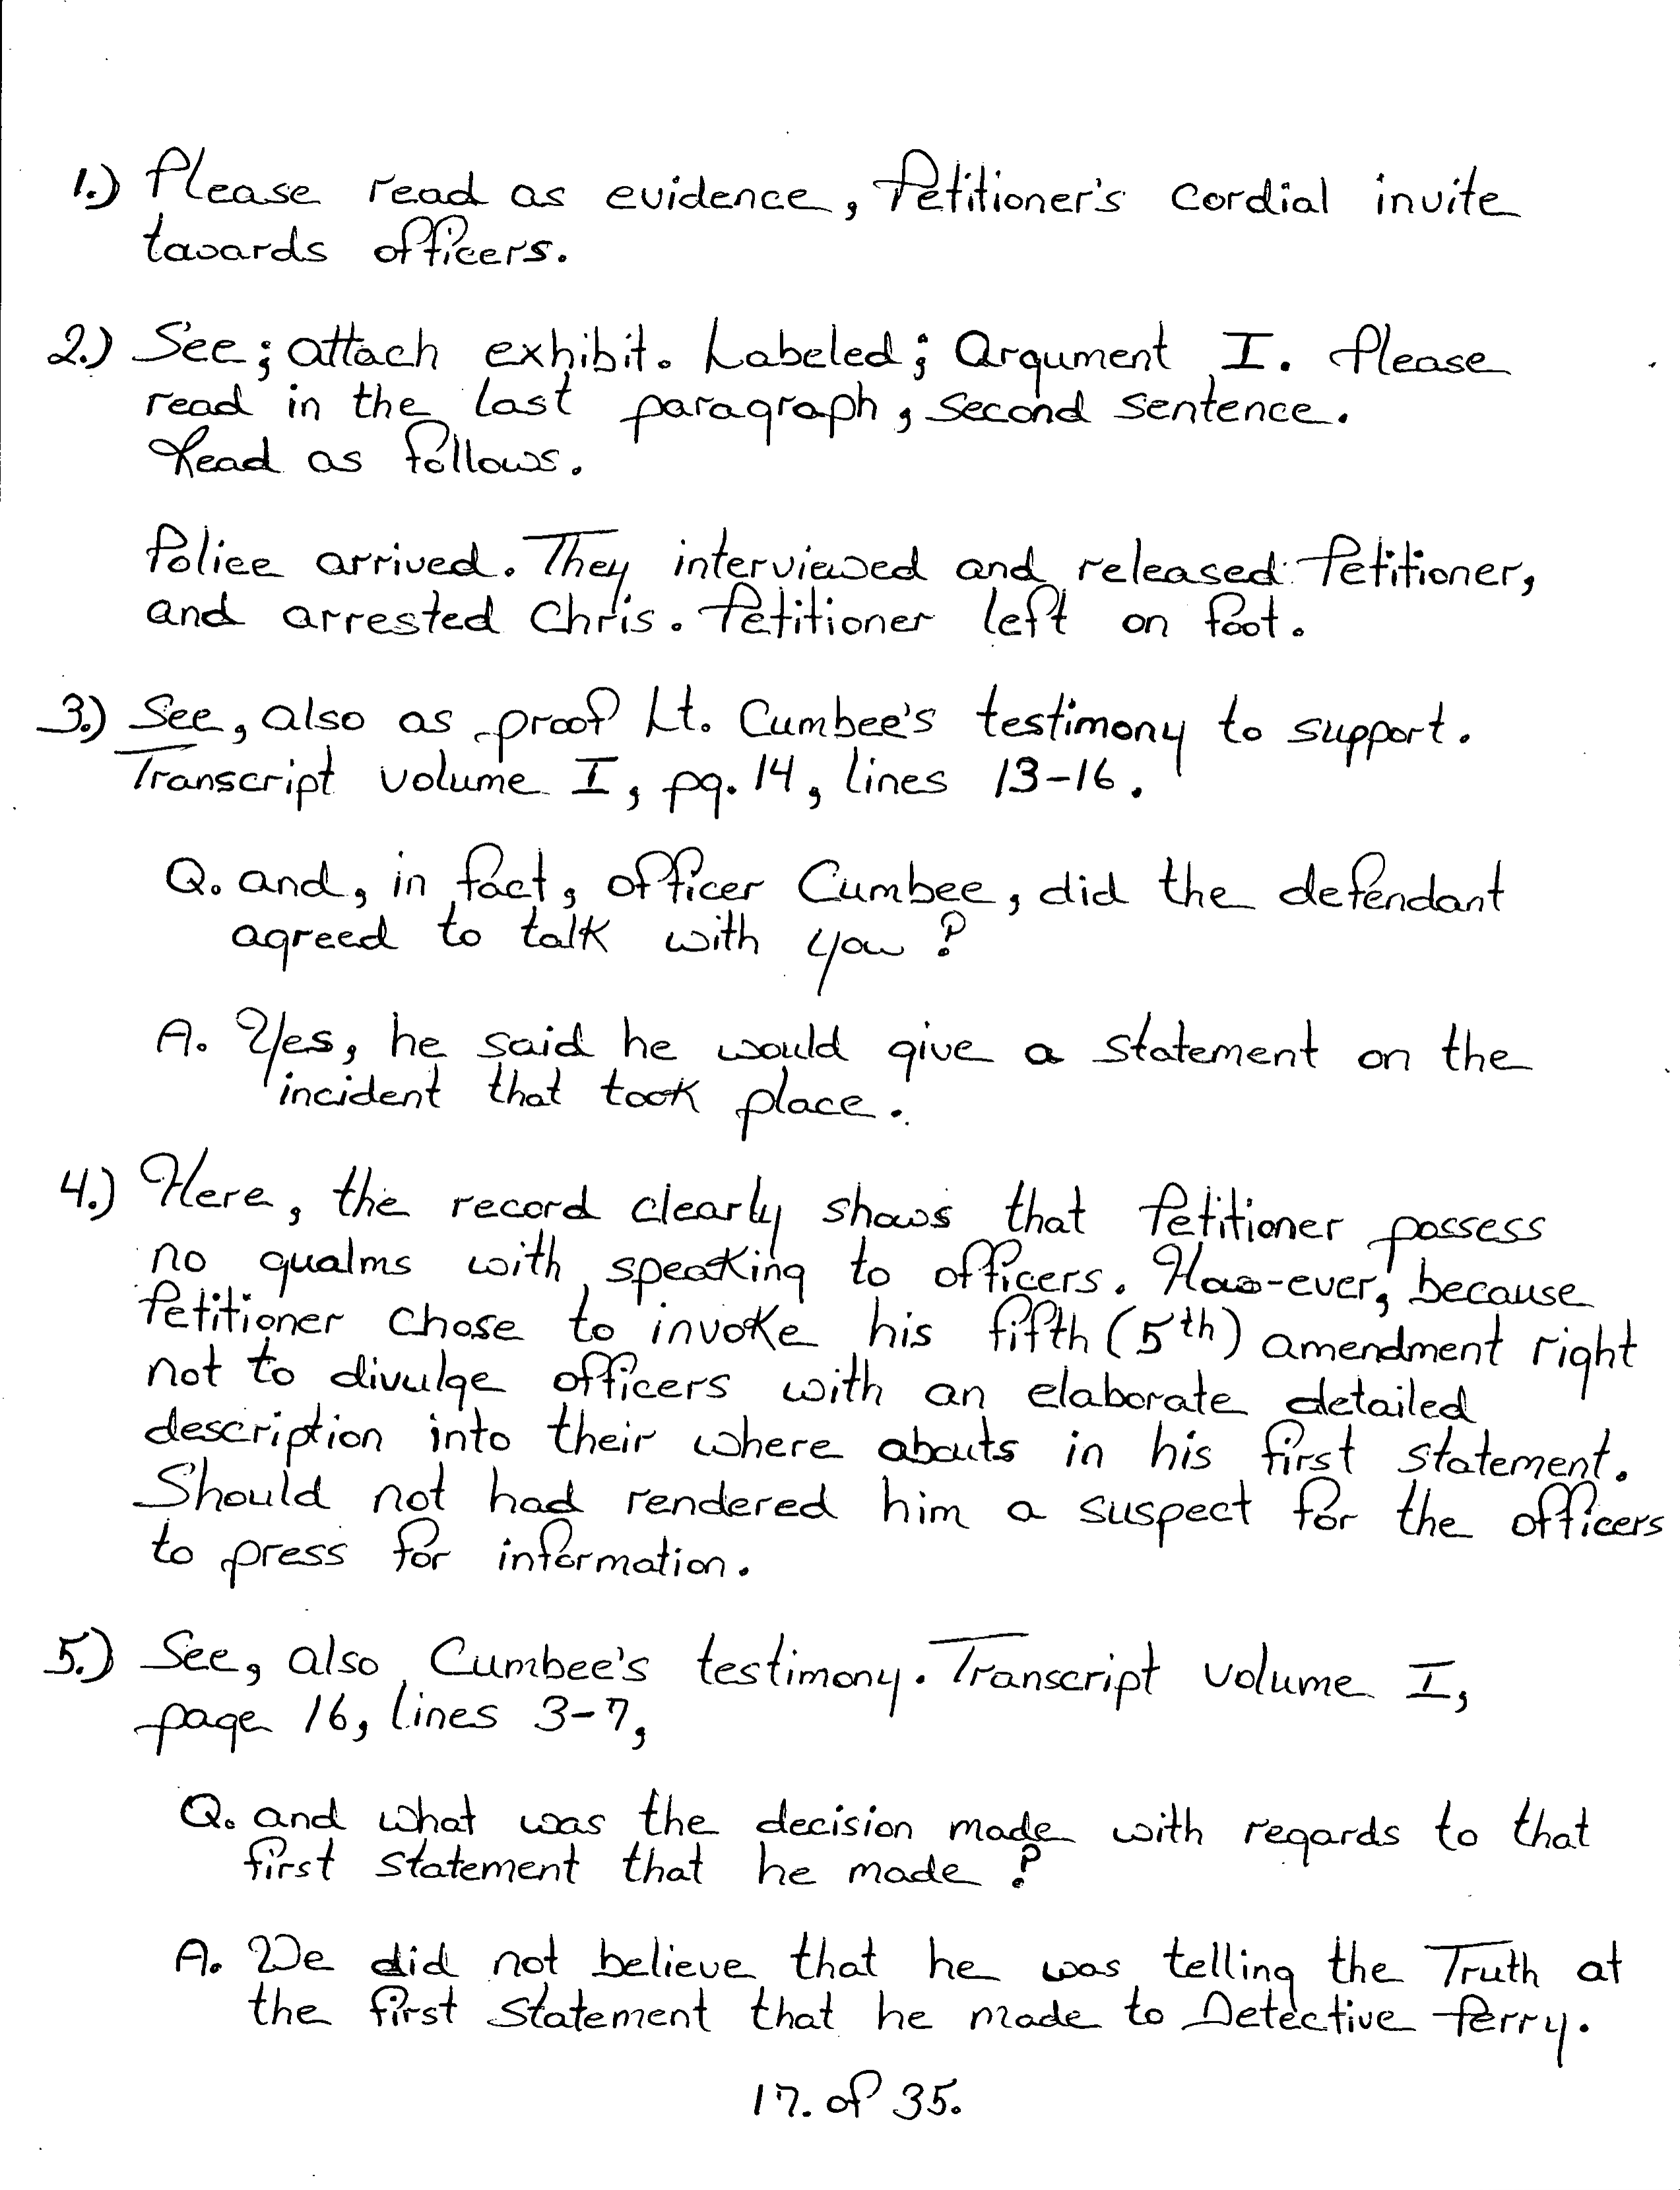 1.) Please read as evidence, Petitioner's cordial invite
towards officers.
2.) See; attach exhibit. Labeled; Argument I. Please
read in the last paragraph, second sentence.
Read as follows.
Police arrived. They interviewed and released Petitioner,
and arrested Chris. Petitioner left on foot.
3.) See, also as proof Lt. Cumbee's testimony to support.
Transcript volume I, pg. 14, lines 13-16.
Q. and, in fact, officer Cumbee, did the defendant
agreed to talk with you?
A. Yes, he said he would give a statement on the
incident that took place.
4.) Here, the record clearly shows that Petitioner possess
no qualms with speaking to officers. How-ever, because
Petitioner chose to invoke his fifth (5th) amendment right
not to divulge officers with an elaborate detailed
description into their where abouts in his first statement.
Should not had rendered him a suspect for the officers
to press for information.
5.) See, also Cumbee's testimony. Transcript volume I,
page 16, lines 3-7,
Q. and what was the decision made with regards to that
first statement that he made?
A. We did not believe that he was telling the Truth at
the first statement that he made to Detective Perry.
17. of 35.